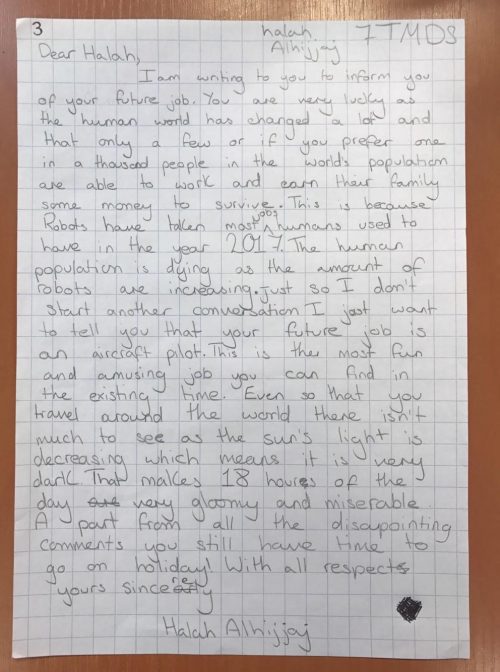 3
halah
Alhijjaj
7TMDS
Dear Halah,
I am writing to you to inform you
of your future job. You are very lucky as
the human world has changed a lot and
that only a few or if you prefer one
in a thousand people in the world's population
are able to work and earn their family
some money to survive. This is because
Robots have taken most jobs humans used to
have in the year 2017. The human
population is dying as the amount of
robots are increasing. Just so I don't
start another conversation I jost want
to tell you that your future job is
an aircraft pilot. This is the most fun
and amusing job you can find in
the existing time. Even so that you
travel around the world there isn't
much to see as the sun's light is
decreasing which means it is very
dark. That makes 18 hours of the
day are very gloomy and miserable.
A part from all the disapointing
comments you still have time to
go on holiday! With all respects
yours sincerely
Halah Alhijjaj